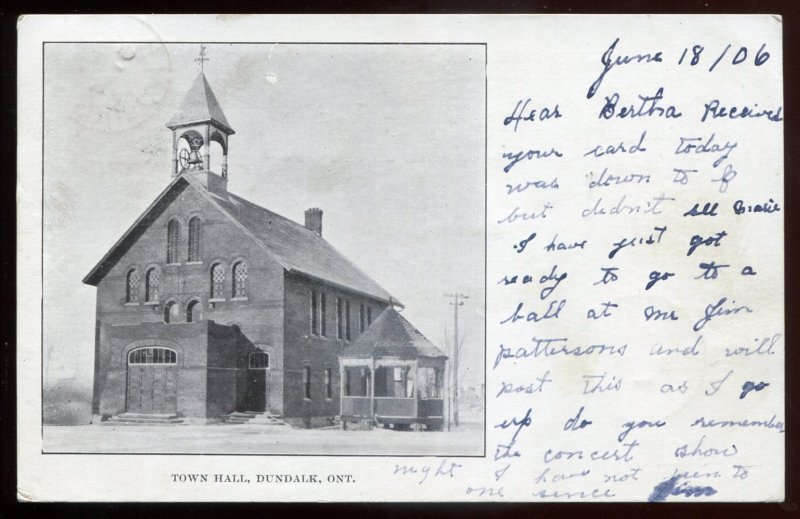 June 18/06
Dear Bertha Received
your card today
was down to F
but didn't see
I have just got
ready to go to a
ball at Mr Jim
pattersons and will
post this as I go
up do you remember
the concert show
night I have not been to
one since
TOWN HALL, DUNDALK, ONT.